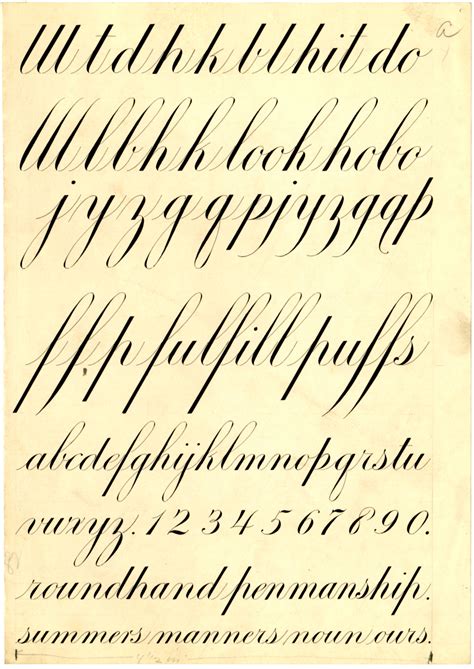 a
lll t d h k b l hit do
lll l b h k look hobo
j y z g q p j y z g q p
f f p fulfill puffs
abcdefghijklmnopqrstu
vwxyz. 1 2 3 4 5 6 7 8 9 0.
roundhand penmanship.
summers manners noun ours.